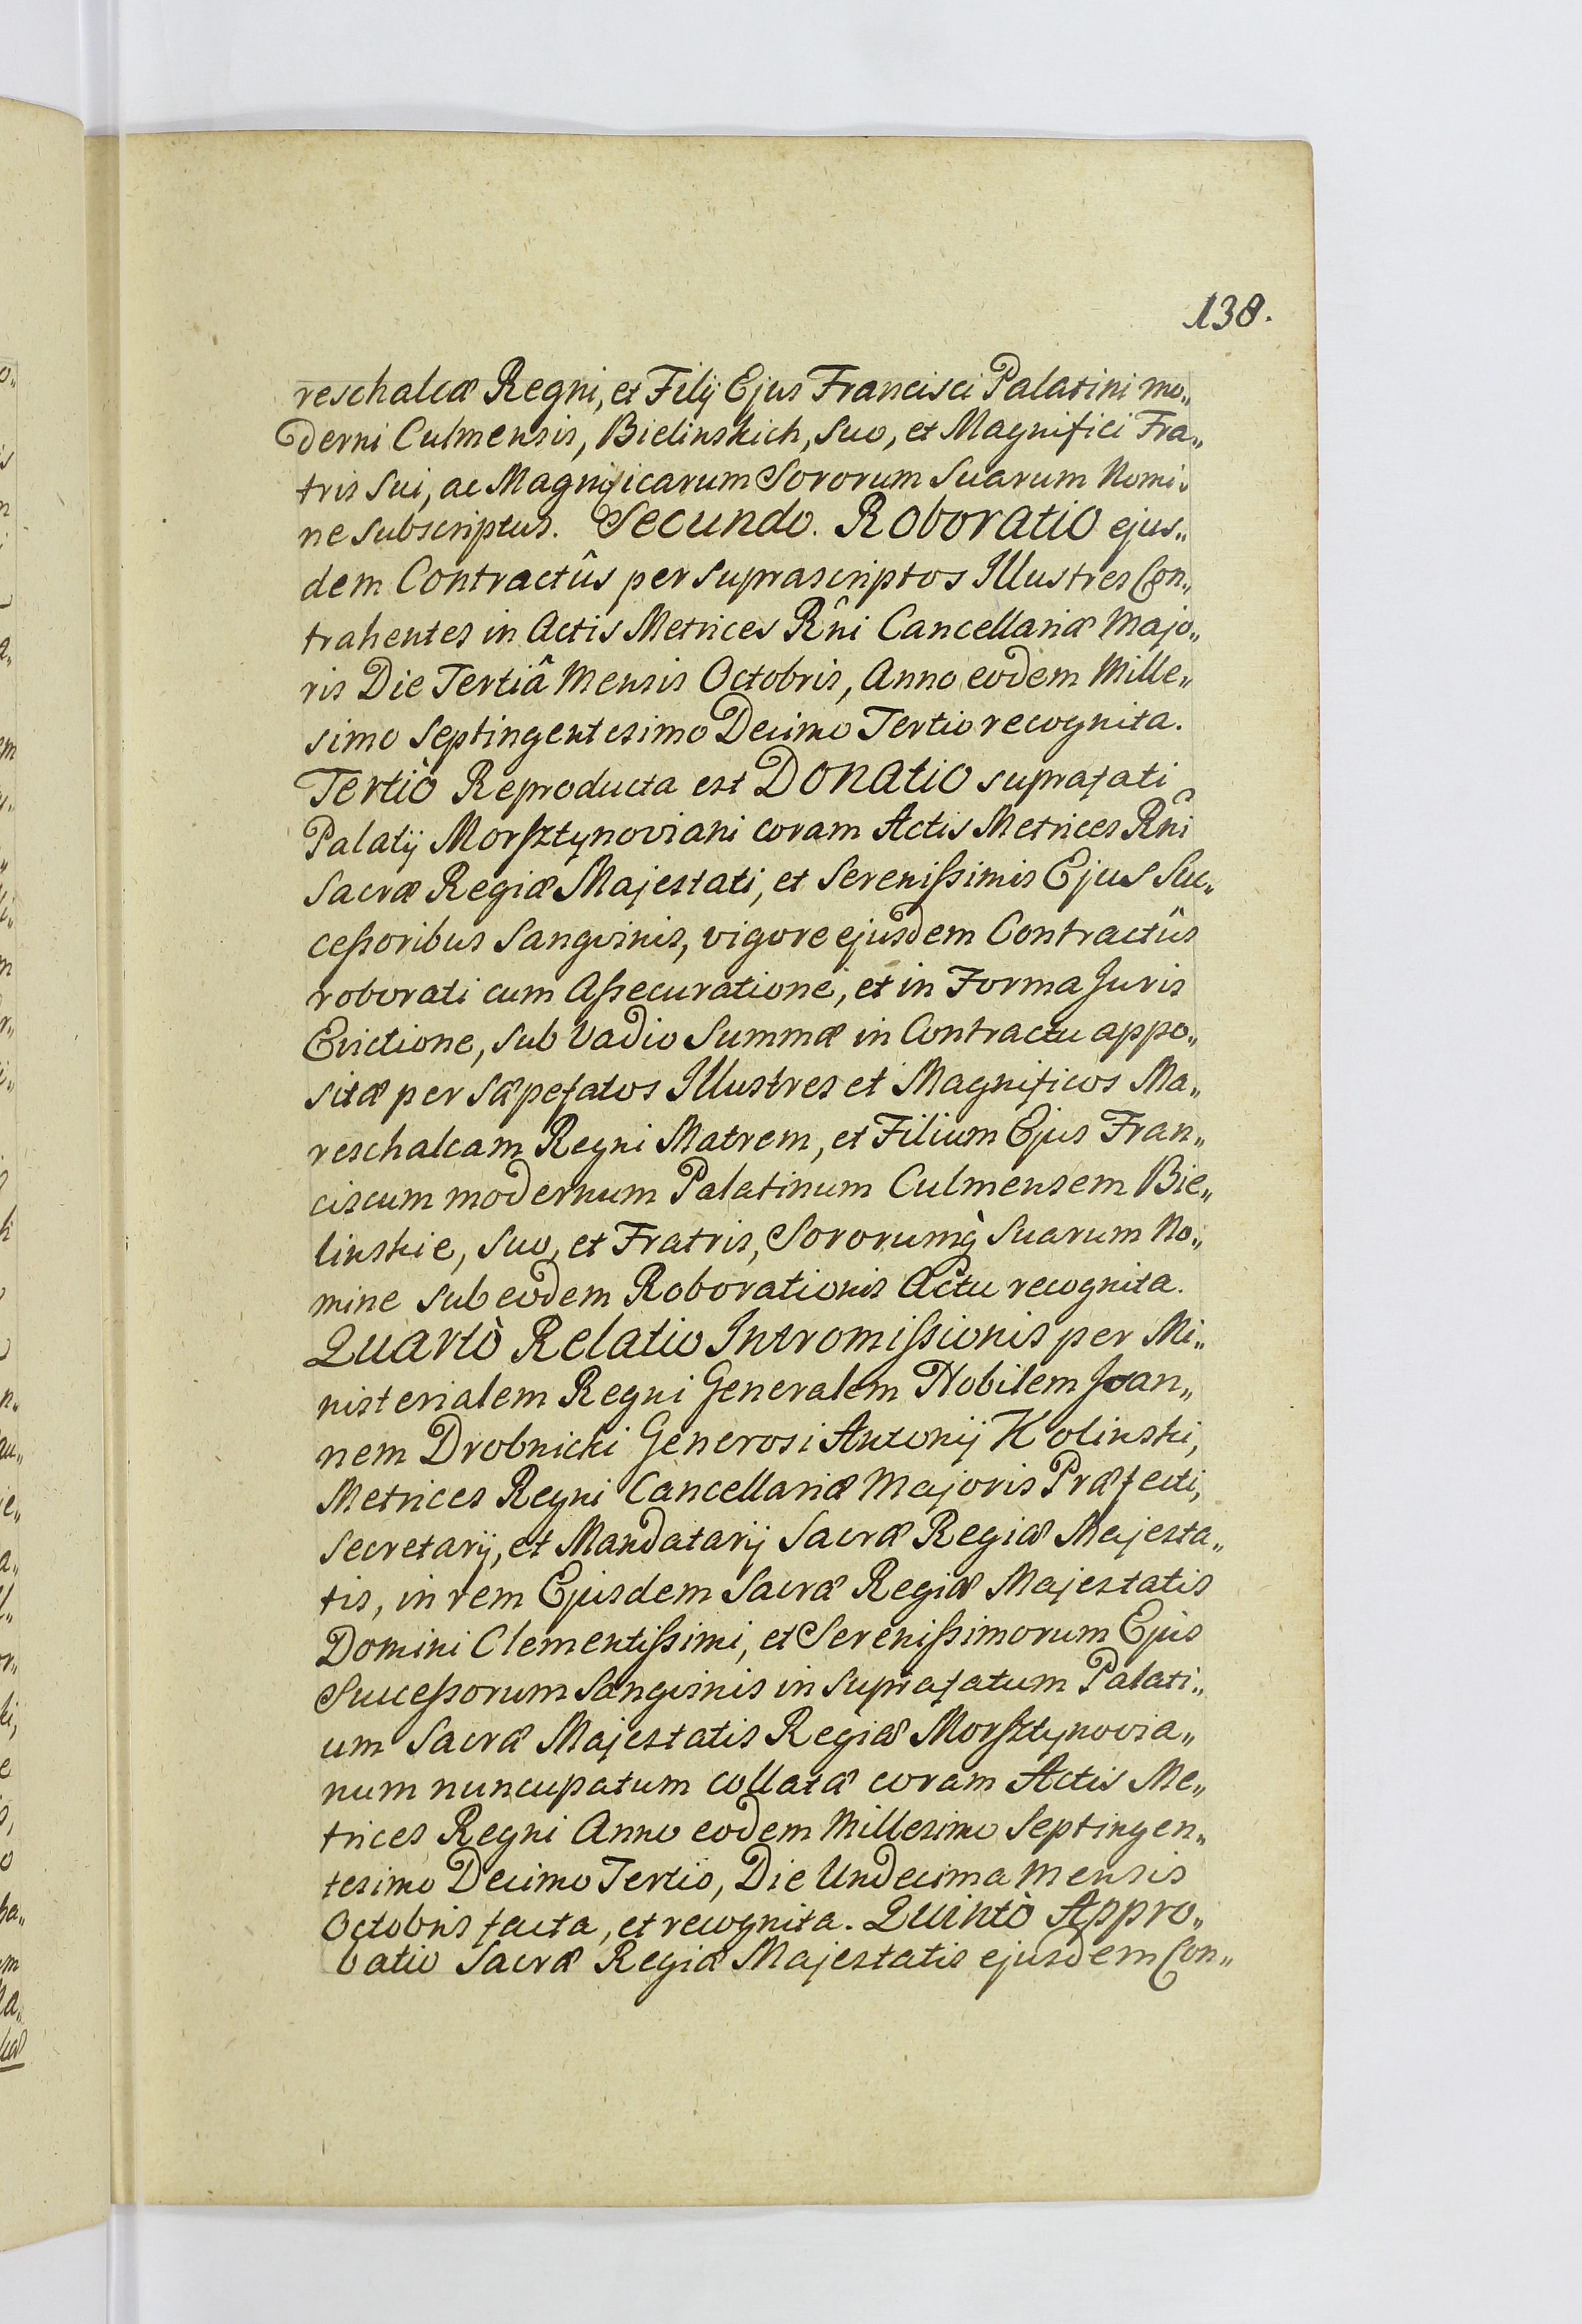 138.
reschalcæ Regni, et Filÿ Ejus Francisci Palatini mo„
derni Culmensis, Bielinskich, suo, et Magnifici Fra„
tris sui, ac Magnificarum Sororum suarum Nomi„
ne subscriptus. Secundo. Roboratio ejus„
dem Contractûs per suprascriptos Illustres Con„
trahentes in Actis Metrices Rñi Cancellariæ Majo„
ris Die Tertiâ Mensis Octobris, Anno eodem Mille„
simo Septingentesimo Decimo Tertio recognita.
Tertiò Reproducta est Donatio suprafati
Palatÿ Morsztynoviani coram Actis Metrices Rñi
Sacræ Regiæ Majestati, et Serenissimis Ejus Suc„
cessoribus Sangvinis, vigore ejusdem Contractûs
roborati cum Assecuratione, et in Forma Juris
Evictione, sub Vadio Summæ in Contractu appo„
sitæ per sæpefatos Illustres et Magnificos Ma„
reschalcam Regni Matrem, et Filium Ejus Fran„
ciscum modernum Palatinum Culmensem Bie„
linskie, suo, et Fratris, Sororumq̀ suarum No„
mine sub eodem Roborationis Actu recognita.
Quartò Relatio Intromissionis per Mi„
nisterialem Regni Generalem Nobilem Joan„
nem Drobnicki Generosi Antonÿ Kolinski,
Metrices Regni Cancellariæ Majoris Præfecti,
Secretarÿ, et Mandatarÿ Sacræ Regiæ Majesta„
tis, in rem Ejusdem Sacræ Regiæ Majestatis
Domini Clementissimi, et Serenissimorum Ejus
Successorum Sangvinis in suprafatum Palati„
um Sacræ Majestatis Regiæ Morsztynovia„
num nuncupatum collatæ coram Actis Me„
trices Regni Anno eodem Millesimo Septingen„
tesimo Decimo Tertio, Die Undecima Mensis
Octobris facta, et recognita. Quintò Appro„
batio Sacræ Regiæ Majestatis ejusdem Con„